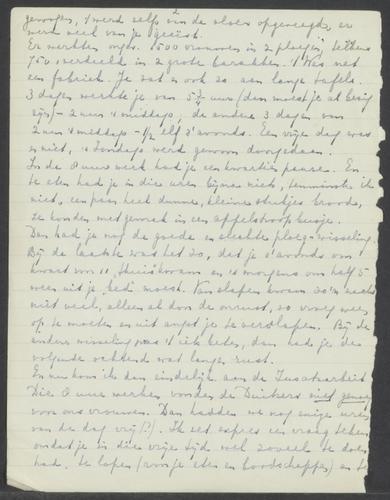 gevroren, 't werd zelfs van de vloer opgeveegd, er
werd veel van je geëist.
Er werkten ongev. 1500 vrouwen in 2 ploegen, telkens
750, verdeeld in 2 grote barakken. 't Was net
een fabriek. Je zat er ook zo aan lange tafels.
3 dagen werkte je van 5¾ uur (dan moest je al bezig
zijn) - 2 uur 's middags, de andere 3 dagen van
2 uur 's middags - ½ elf 's avonds. Een vrije dag was
er niet, 's Zondags werd gewoon doorgedaan.
In die 8 uur werk had je een kwartier pauze. En
te eten had je in die uren bijna niets, tenminste ik
niet, een paar heel dunne, kleine stukjes brood,
ze konden met gemak in een appelstroop busje.
Dan had je nog de goede en slechte ploeg-wisseling.
Bij de laatste was het zo, dat je 's avonds om
kwart voor 11, thuis kwam en 's morgens om half 5
weer uit je bed moest. Van slapen kwam zo'n nacht
niet veel, alleen al door de onrust, zo vroeg weer
op te moeten en uit angst je te verslapen. Bij de
andere wisseling was 't iets beter, dan had je de
volgende ochtend wat langer rust.
En nu kom ik dan eindelijk aan de Zusatzarbeit
Die 8 uur werken, vonden de Duitsers niet genoeg
voor ons vrouwen. Dan hadden we nog enige uren
van de dag vrij (?). Ik zet expres een vraagteken
omdat je in die vrije tijd nog zoveel te doen
had, te lopen (voor je eten en boodschappen) en t